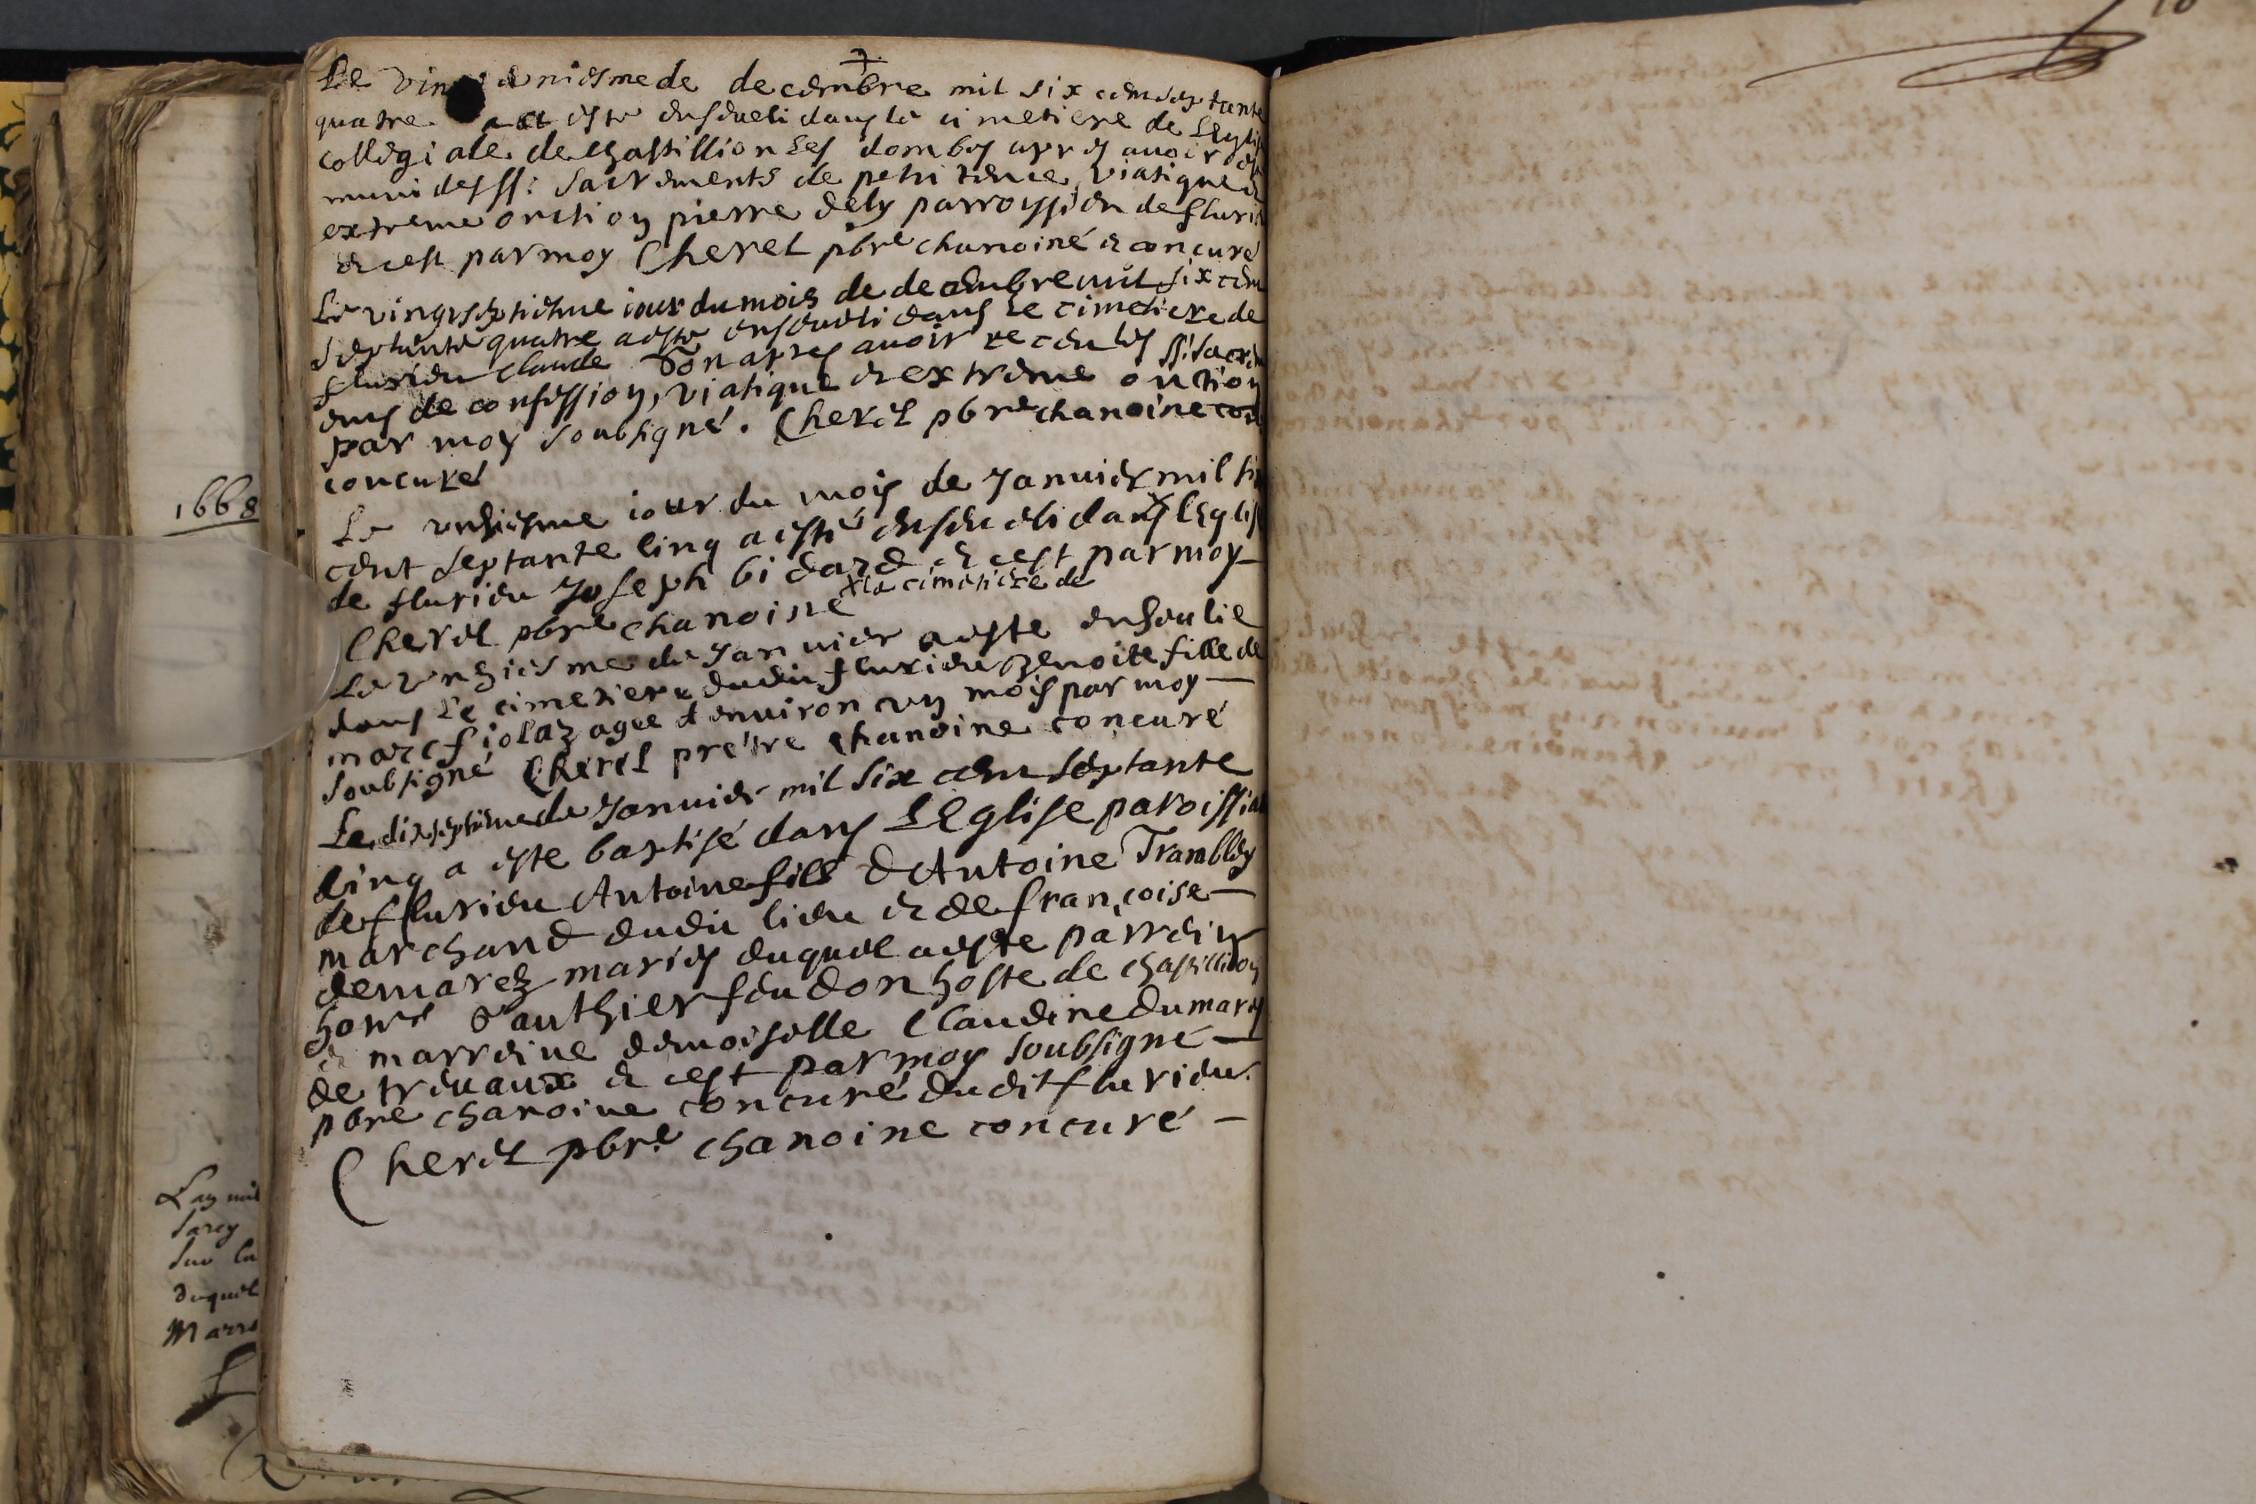 Le vingt uniesme de decembre mil six cens septante
quatre a esté ensveli dans le cimetiere de LEglise
collegiale de chastillion Les dombes apres avoir esté
muni des SS: sacrements de penitence, viatique et
extreme onction pierre dely parroissien de fluri
et cest par moy Cherel pbre chanoine et concuré
Le vingt septiesme iour du mois de decembre mil six cens
septante quatre a esté enseveli dans Le cimetiere de
flurieu claude Don apres avoir receu les SS: sacrem
ens de confession, viatique et extreme onction
par moy soubsigné. Cherel pbre chanoine con
concuré
Le unsiesme iour du mois de Janvier mil six
cent septante cinq a esté enseveli dans x LEglise
de flurieu Joseph bidard et cest par moy
Cherel pbre chanoine x le cimetiere de
Le unziesme de Janvier a esté ensevelie
dans Le cimetiere dudit flurieu benoite fille de
marc fiolaz agee d environ un mois par moy
soubsigné Cherel prestre chanoine concuré
Le dixseptiesme de Janvier mil six cens septante
cinq a esté baptisé dans LEglise paroissial
de flurieu Antoine fils d'Antoine Trambley
marchand dudit lieu et de françoise
demarez mariés duquel a esté parrein
honré Gauthier feudon hoste de chastillion
et marreine demoiselle Claudine dumarez
de trevaux et cest par moy soubsigné
pbre chanoine concuré dudit flurieu.
Cherel pbre chanoine concuré
1668
Lan mil
duquel
10